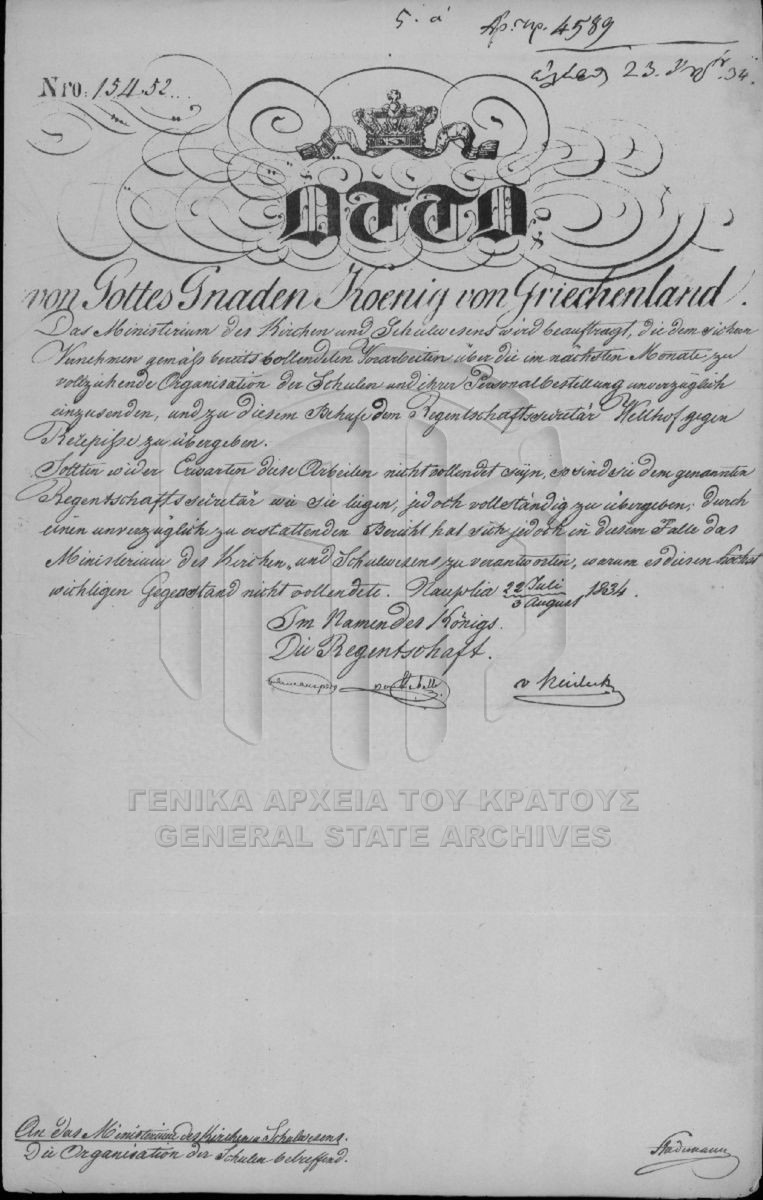 5. á
Αρ. πρ. 4589
23. 34.
Nro: 15452.
OTTO
von Gottes Gnaden Koenig von Griechenland.
Das Ministerium des Kirchen und Schulwesens wird beauftragt, die dem sichern
Vernehmen gemäß bereits vollendeten Vorarbeiten über die im nächsten Monate zu
vollziehende Organisation der Schulen und ihrer Personalbestellung unverzüglich
einzusenden, und zu diesem Behufe dem Regentschaftssecretär Wellhof gegen
Rezepisse zu übergeben.
Sollten wider Erwarten diese Arbeiten nicht vollendet seyn, so sind sie dem genannten
Regentschaftssecretär wie sie liegen, jedoch vollständig zu übergeben; durch
einen unverzüglich zu erstattenden Bericht hat sich jedoch in diesem Falle das
Ministerium des Kirchen- und Schulwesens zu verantworten, warum es diesen höchst
wichtigen Gegenstand nicht vollendete. Nauplia 22 Juli / 3 August 1834.
Im Namen des Königs.
Die Regentschaft.
v Heideck
ΓΕΝΙΚΑ ΑΡΧΕΙΑ ΤΟΥ ΚΡΑΤΟΥΣ
GENERAL STATE ARCHIVES
An das Ministerium des Kirchen u. Schulwesens.
Die Organisation der Schulen betreffend.
Stademann